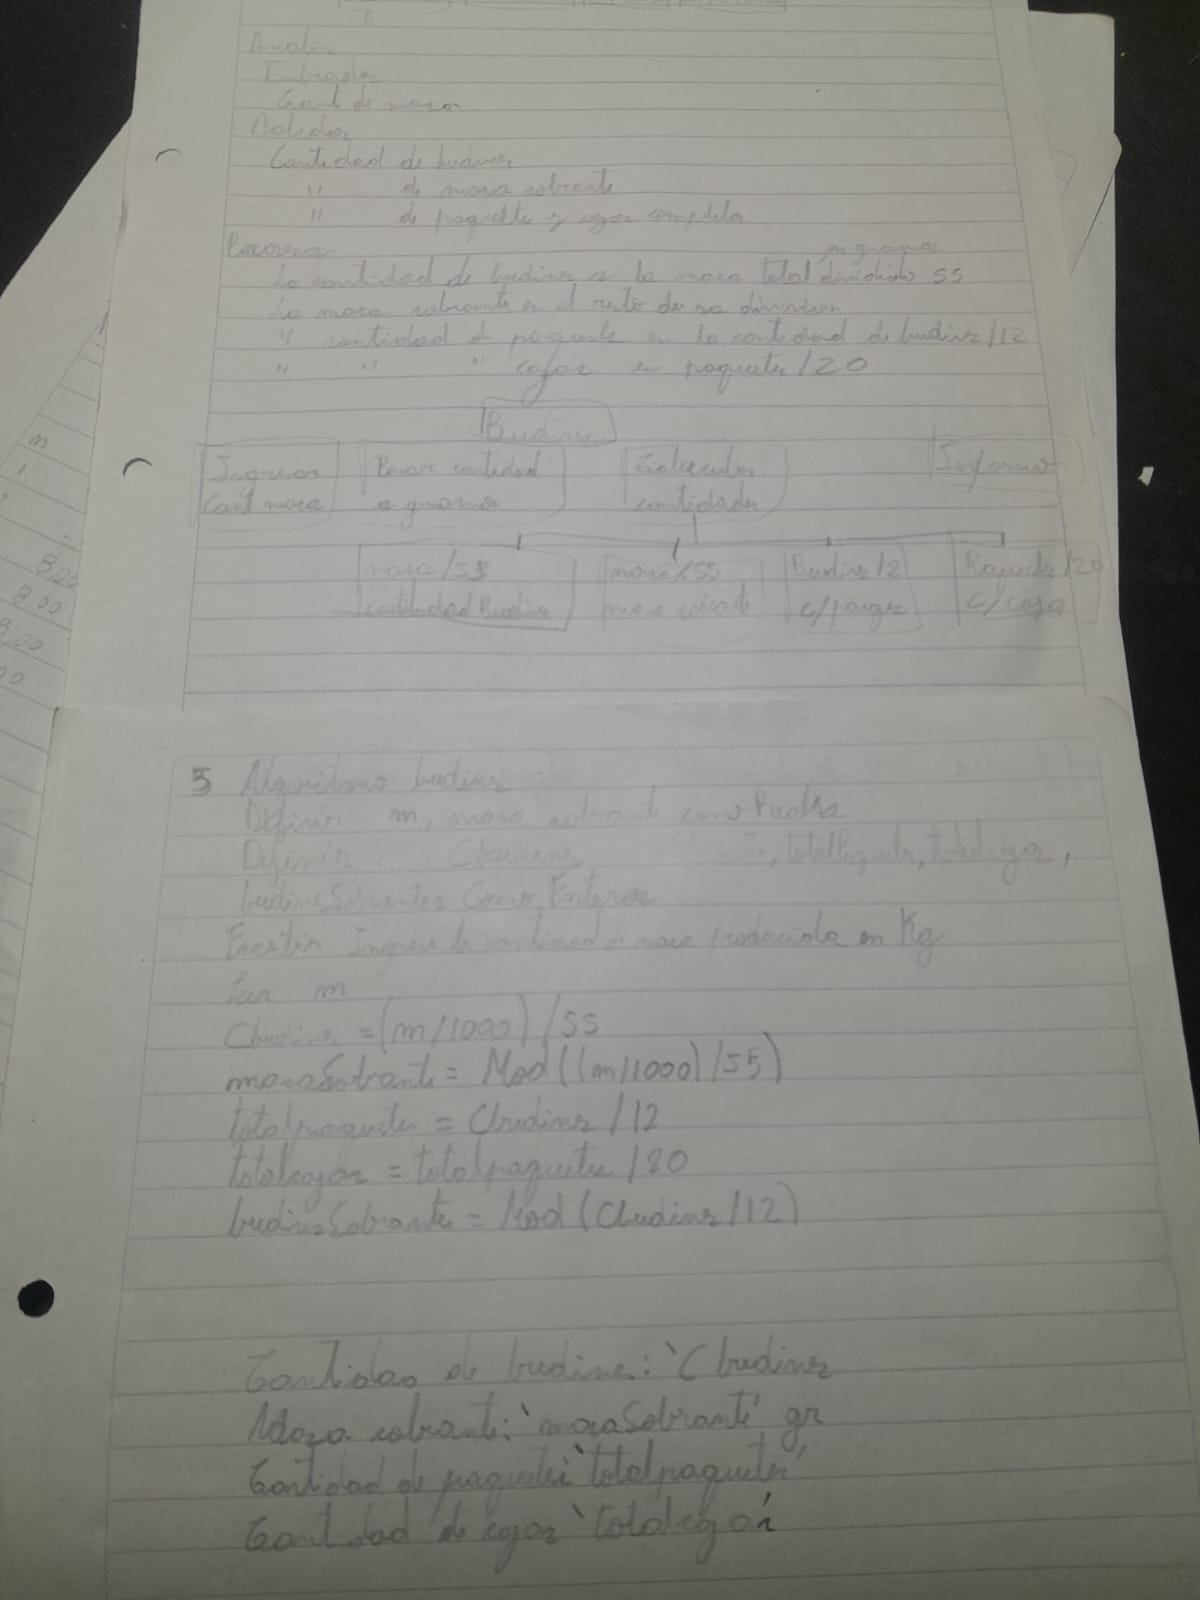 Analisis
Entradas
Cant de masa
Salidas
Cantidad de budines
" de masa sobrante
" de paquetes y cajas completas
Proceso
en gramos
La cantidad de budines es la masa total dividido 55
La masa sobrante es el resto de sa division
" cantidad de paquete es la cantidad de budines/12
" " " cajas es paquetes/20
Budines
Ingresar Pasar cantidad Calcular Informar
Cant masa a gramos cantidades
masa/55 masa%55 Budines/12 Paquetes/20
cantidad Budines masa sobrante c/paque c/caja
5 Algoritmo budines
Definir m, masa sobrante como Reales
Definir Cbudines, totalPaquetes, totalcajas,
budinesSobrantes Como Enteros
Escribir Ingrese la cantidad de masa producida en Kg
Leer m
Cbudines = (m/1000) /55
masaSobrante = Mod((m/1000)/55)
totalpaquetes = Cbudines /12
totalcajas = totalpaquetes /20
budinesSobrantes = Mod (Cbudines/12)
Cantidad de budines: 'Cbudines
Masa sobrante: 'masaSobrante' gr
Cantidad de paquetes 'totalpaquetes'
Cantidad de cajas 'totalcajas'